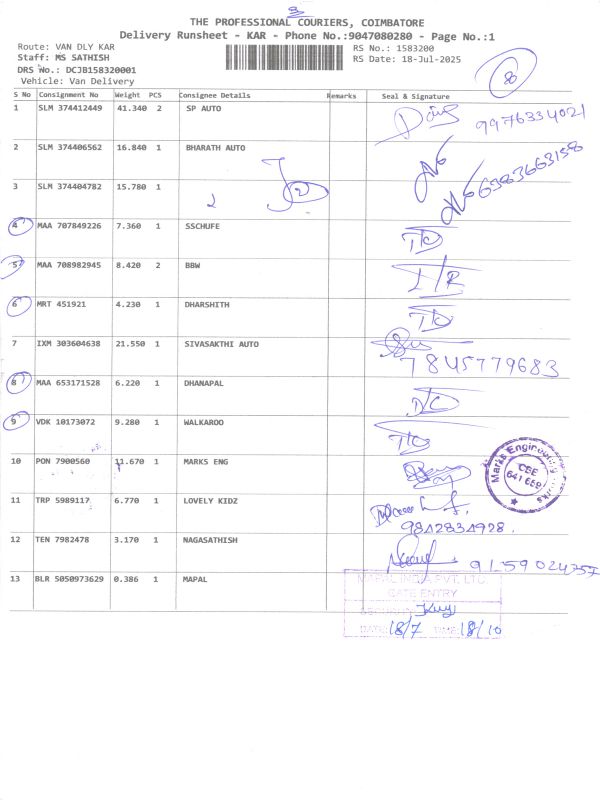 THE PROFESSIONAL COURIERS, COIMBATORE
Delivery Runsheet - KAR - Phone No.:9047080280 - Page No.:1
Route: VAN DLY KAR
Staff: MS SATHISH
DRS No.: DCJB158320001
Vehicle: Van Delivery
RS No.: 1583200
RS Date: 18-Jul-2025
80
S No Consignment No Weight PCS Consignee Details Remarks Seal & Signature
1 SLM 374412449 41.340 2 SP AUTO 9976334021
2 SLM 374406562 16.840 1 BHARATH AUTO
3 SLM 374404782 15.780 1 6383663158
4 MAA 707849226 7.360 1 SSCHUFE
5 MAA 708982945 8.420 2 BBW
6 MRT 451921 4.230 1 DHARSHITH
7 IXM 303604638 21.550 1 SIVASAKTHI AUTO 7845779683
8 MAA 653171528 6.220 1 DHANAPAL D/C
9 VDK 10173072 9.280 1 WALKAROO
10 PON 7900560 11.670 1 MARKS ENG
Marks Engineering Works
CBE
11 TRP 5989117 6.770 1 LOVELY KIDZ 9842834928.
12 TEN 7982478 3.170 1 NAGASATHISH
13 BLR 5050973629 0.386 1 MAPAL
MAPAL INDIA PVT. LTD.
GATE ENTRY
DATE: 18/7 TIME: 18/10